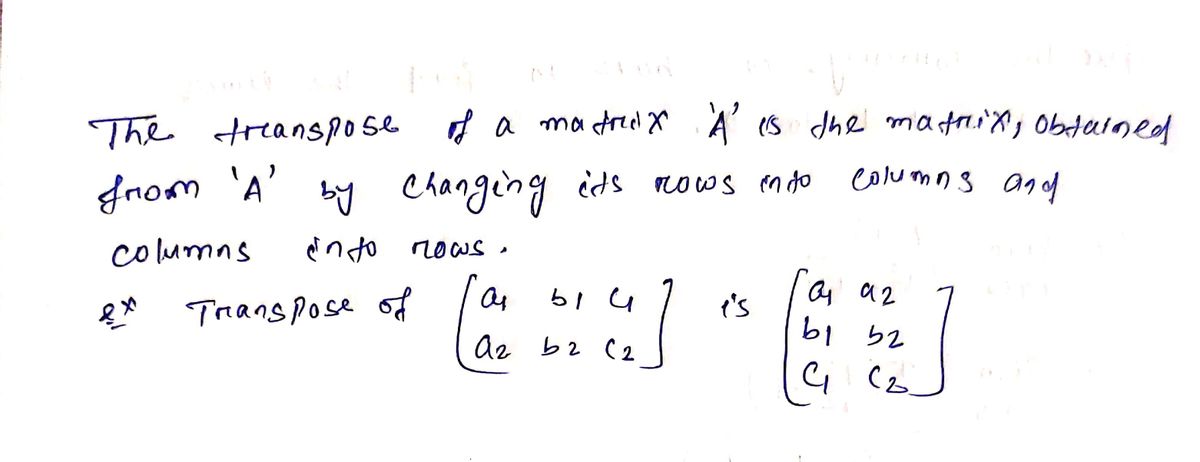 The transpose of a matrix 'A' is the matrix, obtained
from 'A' by changing its rows into columns and
columns into rows.
ex Transpose of [a1 b1 c1 is [a1 a2
a2 b2 c2] b1 b2
c1 c2]